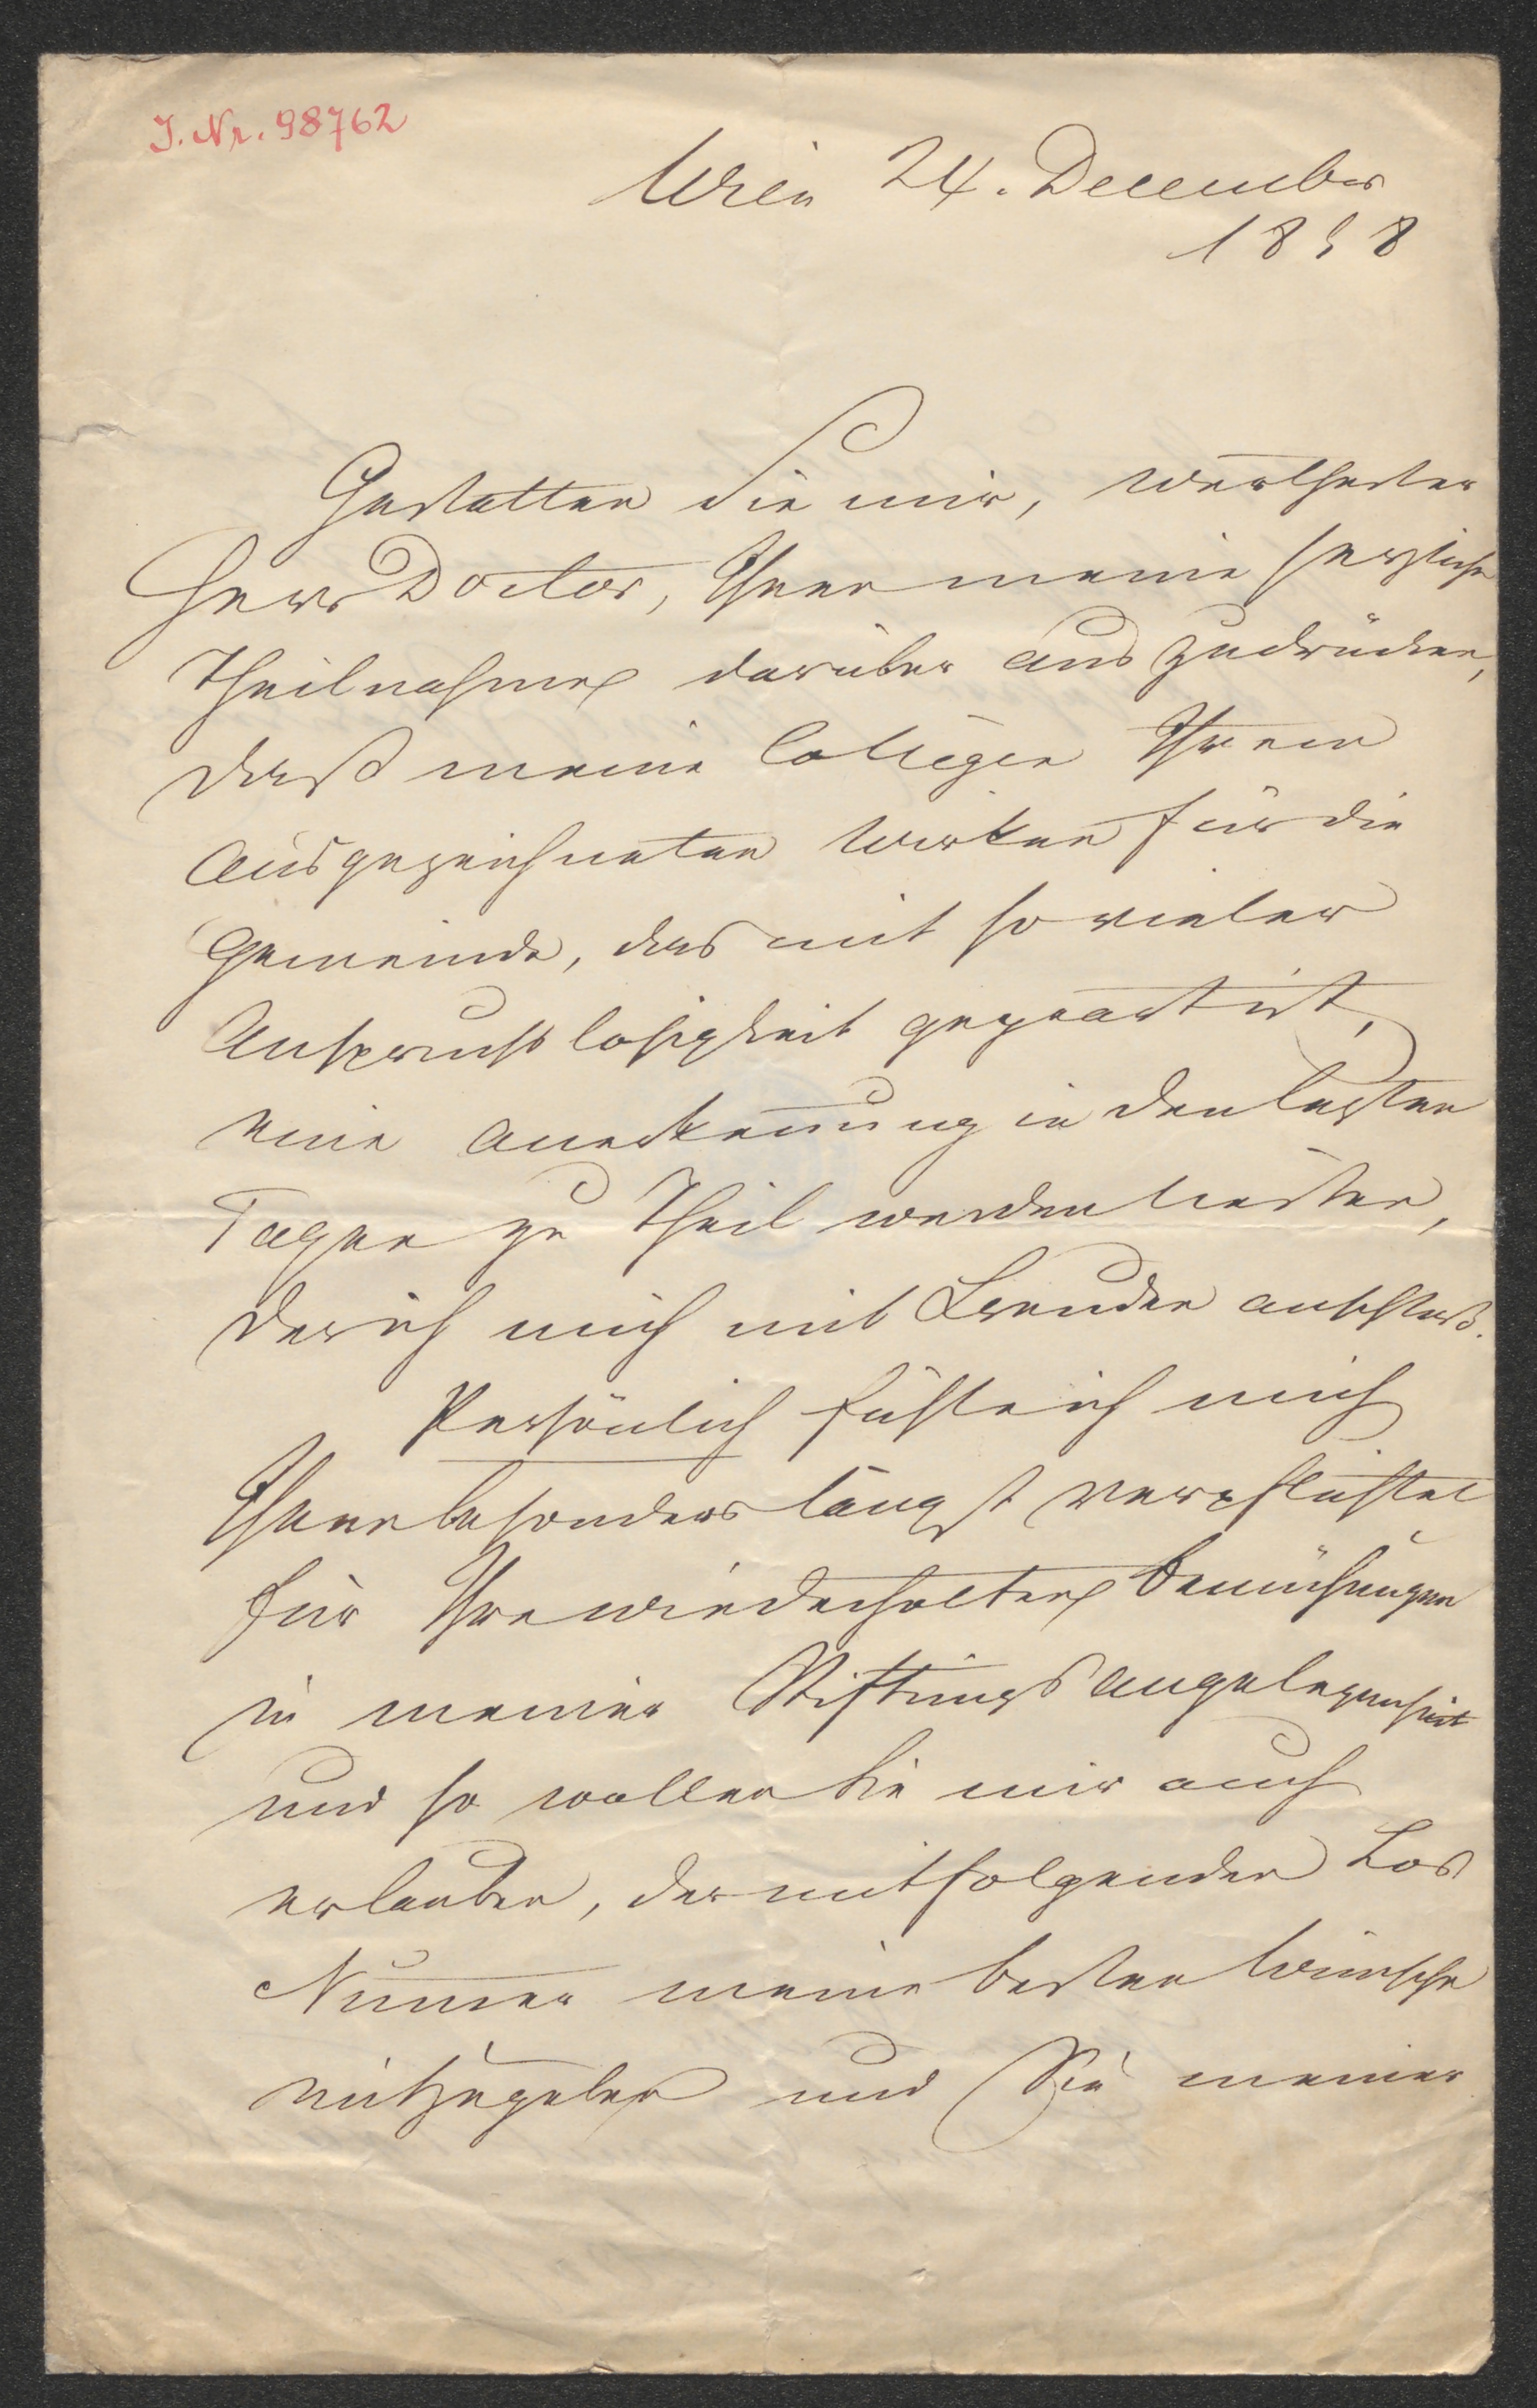 J. Nr. 98762
Wien 24. December
1858
Gestatten Sie mir, werthester
Herr Doctor, Ihnen meine herzliche
Theilnahme darüber auszudrücken,
daß meine Collegen Ihrem
ausgezeichneten Wirken für die
Gemeinde, das mit so vieler
Anspruchslosigkeit gepaart ist,
eine Anerkennung in den letzten
Tagen zu Theil werden ließen,
der ich mich mit Freuden anschloß.
Persönlich fühle ich mich
Ihnen besonders längst verpflichtet
für Ihre wiederholten Bemühungen
in meiner Stiftungsangelegenheit
und so wollen Sie mir auch
erlauben, der mitfolgenden Los
Nummer meine besten Wünsche
mitzugeben und Sie meiner